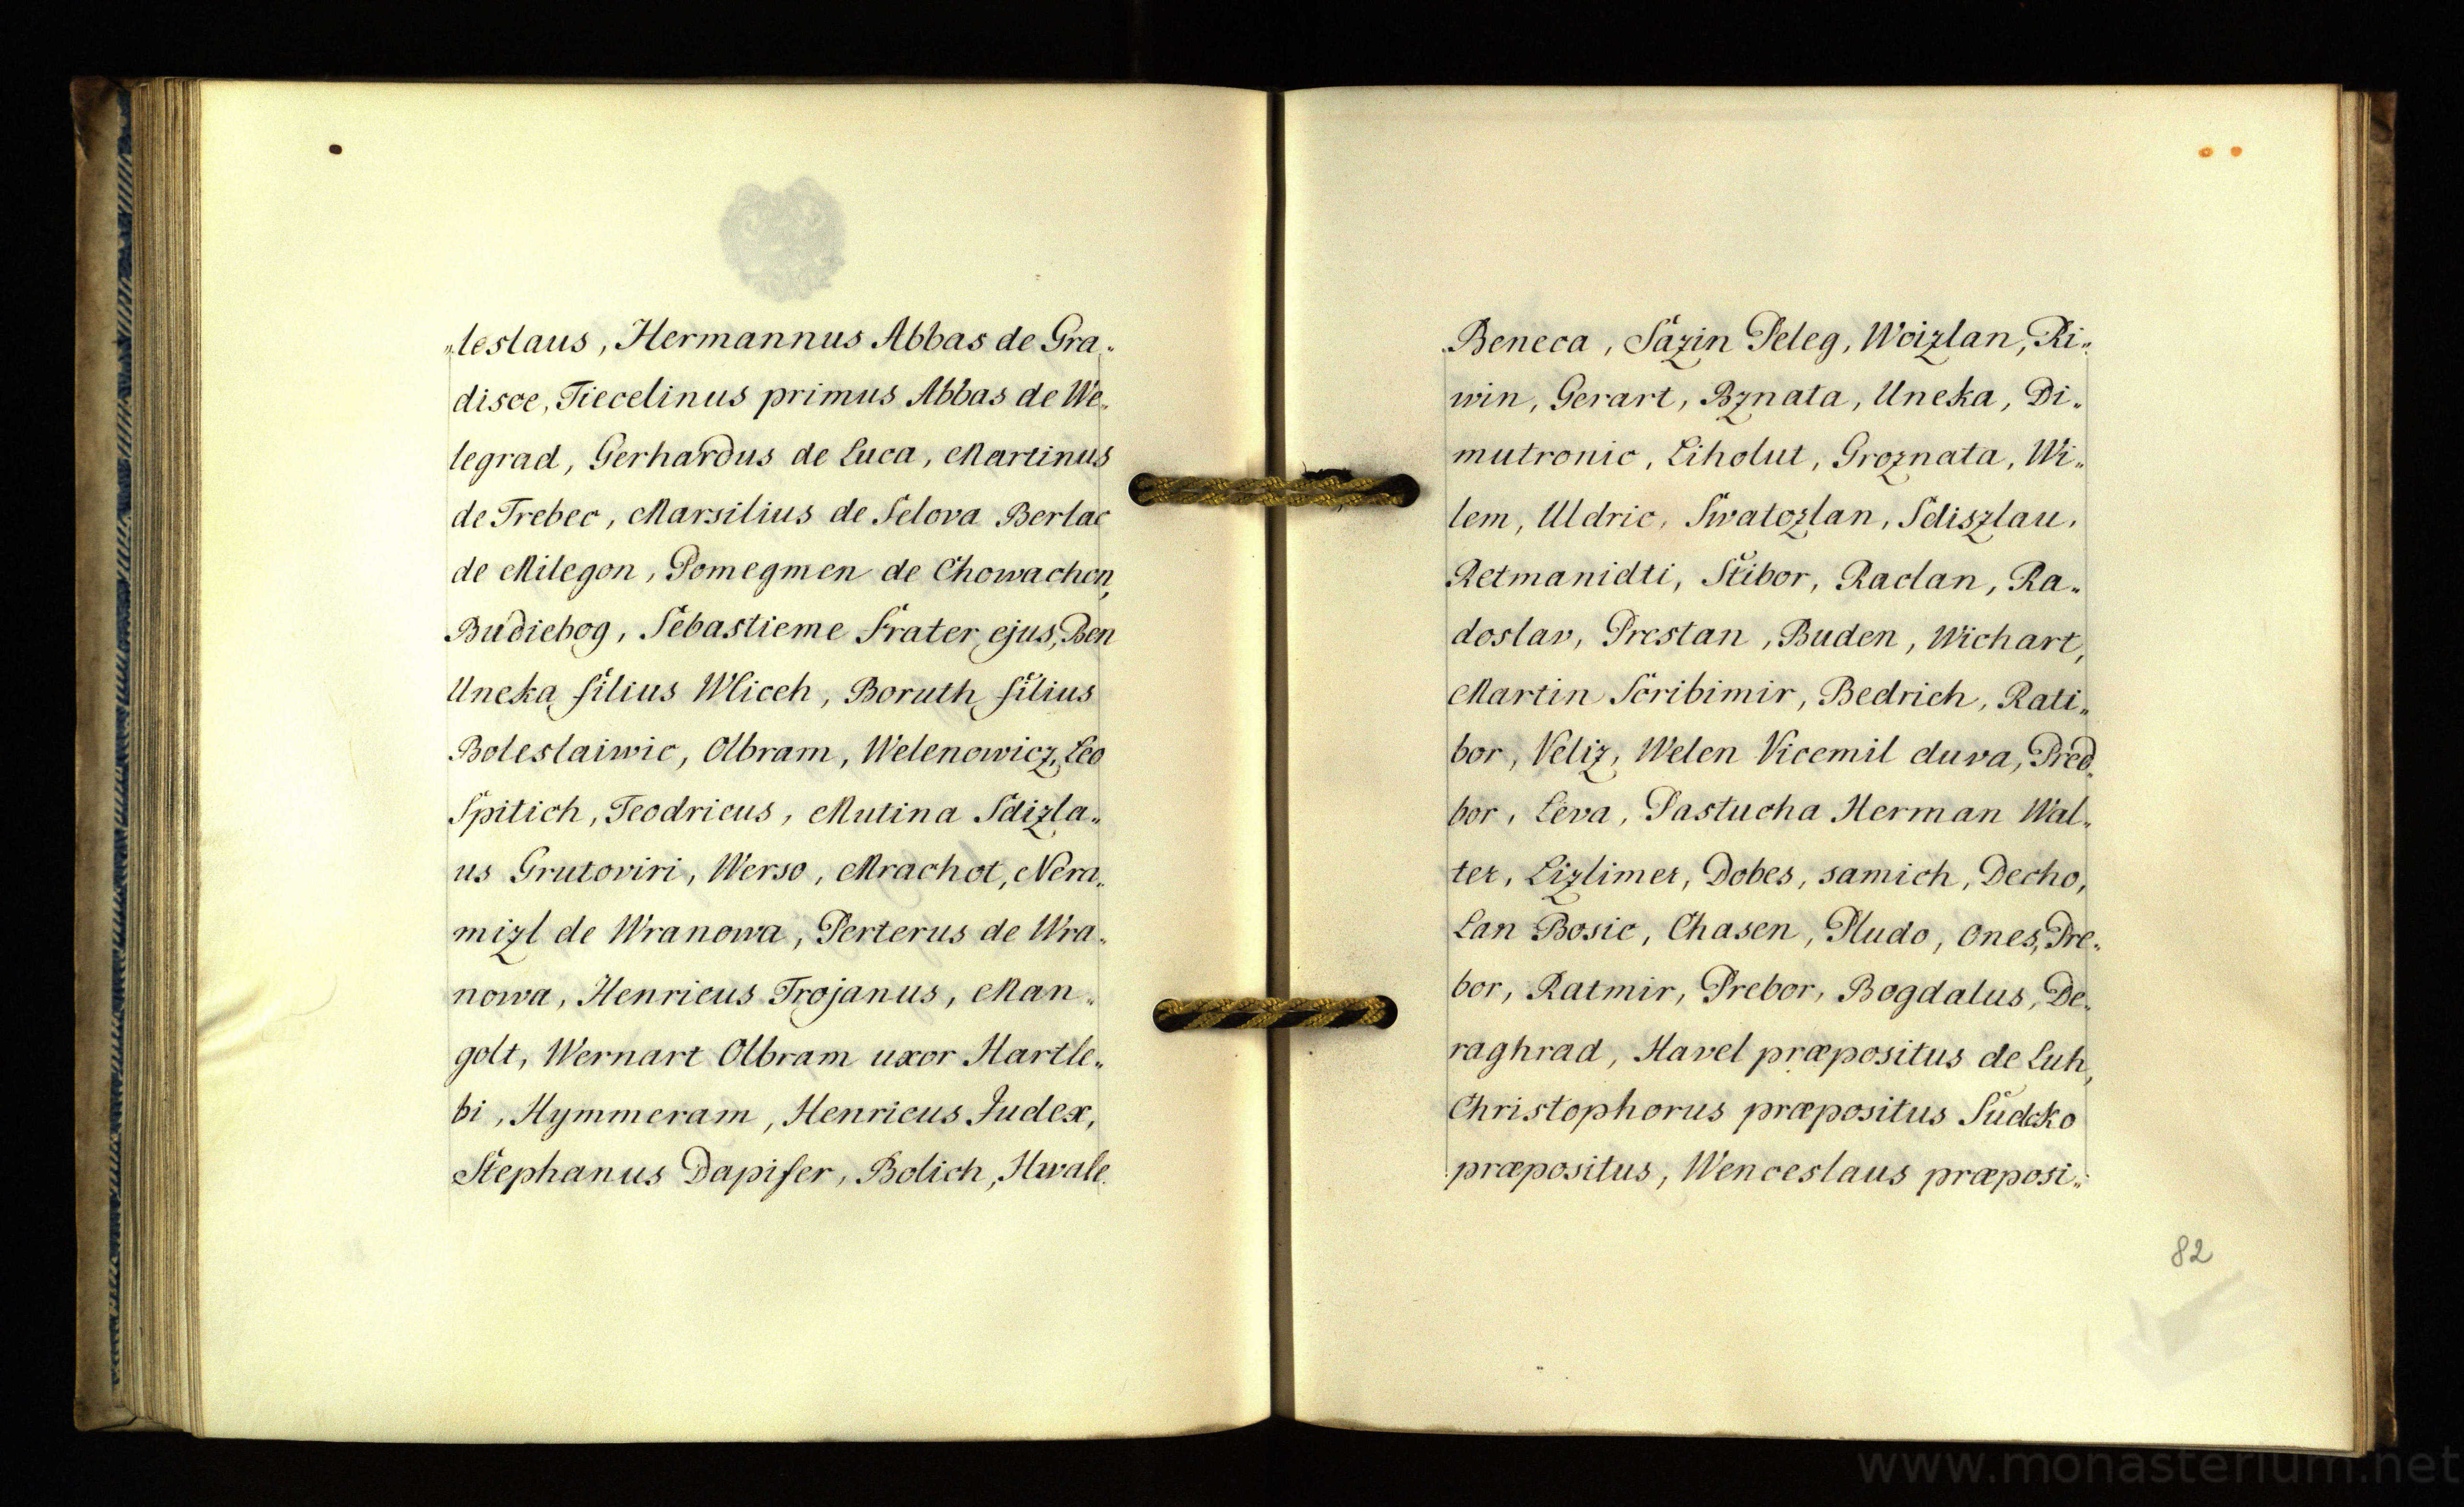 „leslaus, Hermannus Abbas de Gra„
disce, Tiecelinus primus Abbas de We„
legrad, Gerhardus de Luca, Martinus
de Trebec, Marsilius de Selova Berlac
de Milegon, Pomegmen de Chowachon,
Budiebog, Sebastieme Frater ejus, Ben
Uneka filius Wliceh, Boruth filius
Boleslaiwic, Olbram, Welenowicz, Leo
Spitich, Teodricus, Mutina Sdizla„
us Grutoviri, Werso, Mrachot, Nera„
mizl de Wranowa, Perterus de Wra„
nowa, Henricus Trojanus, Man„
golt, Wernart Olbram uxor Hartle„
bi, Hymmeram, Henricus Judex,
Stephanus Dapifer, Bolich, Hwale.
Beneca, Sazin Peleg, Woizlan, Ri„
win, Gerart, Bznata, Uneka, Di„
mutronic, Liholut, Groznata, Wi„
lem, Uldric, Swatozlan, Sdiszlau,
Retmanidti, Stibor, Raclan, Ra„
doslav, Prestan, Buden, Wichart,
Martin Scribimir, Bedrich, Rati„
bor, Veliz, Welen Vicemil duva, Pred„
bor, Leva, Pastucha Herman Wal„
ter, Lizlimer, Dobes, samich, Decho,
Lan Bosic, Chasen, Pludo, Ones, Pre„
bor, Ratmir, Prebor, Bogdalus, De„
raghrad, Havel præpositus de Luh,
Christophorus præpositus Sudcko
præpositus, Wenceslaus præposi„
82
www.monasterium.net